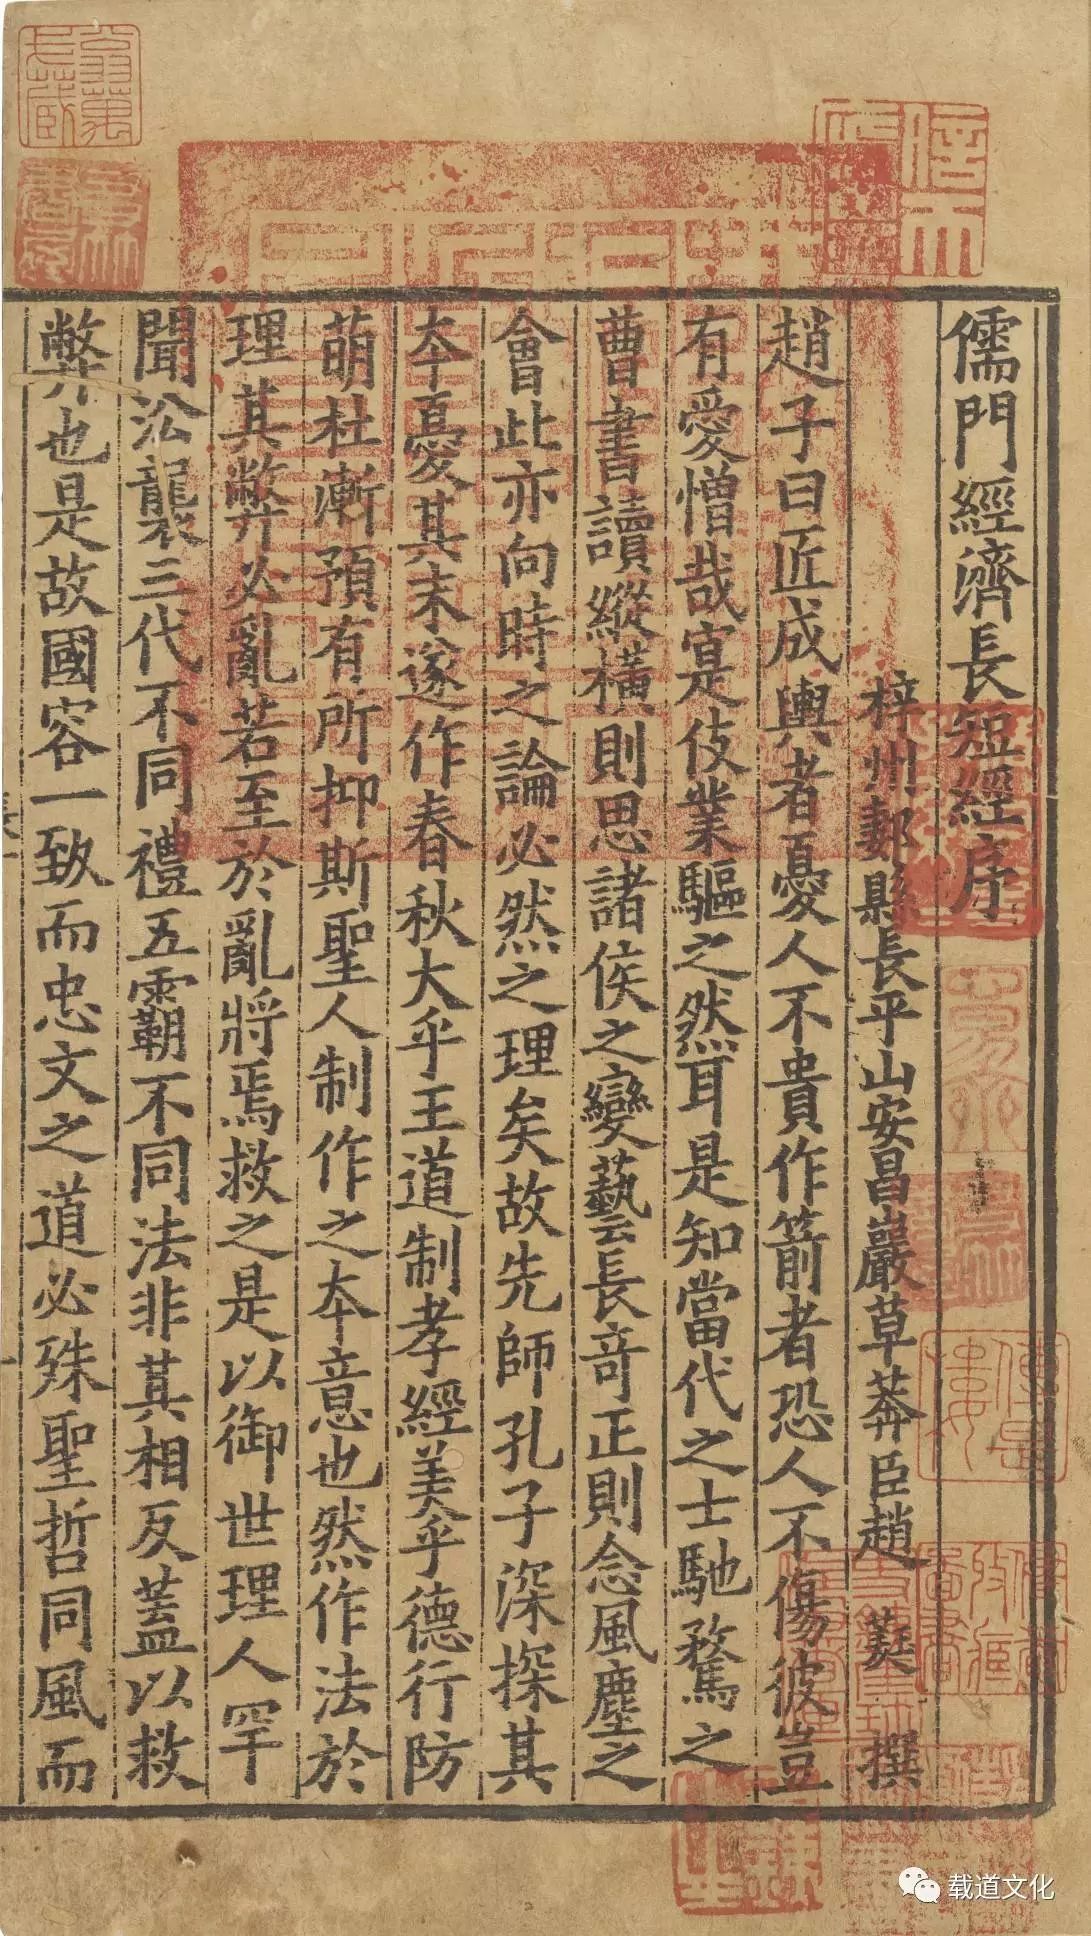 儒門經濟長短經序
梓州郪縣長平山安昌巖草莽臣趙蕤撰
趙子曰匠成輿者憂人不貴作箭者恐人不傷彼豈
有愛憎哉寔是伎業驅之然耳是知當代之士馳騖之
曹書讀縱橫則思諸侯之變藝長奇正則念風塵之
會此亦向時之論必然之理矣故先師孔子深探其
本憂其末遂作春秋大乎王道制孝經美乎德行防
萌杜漸預有所抑斯聖人制作之本意也然作法於
理其弊必亂若至於亂將焉救之是以御世理人罕
聞沿襲三代不同禮五霸不同法非其相反蓋以救
弊也是故國容一致而忠文之道必殊聖哲同風而
载道文化